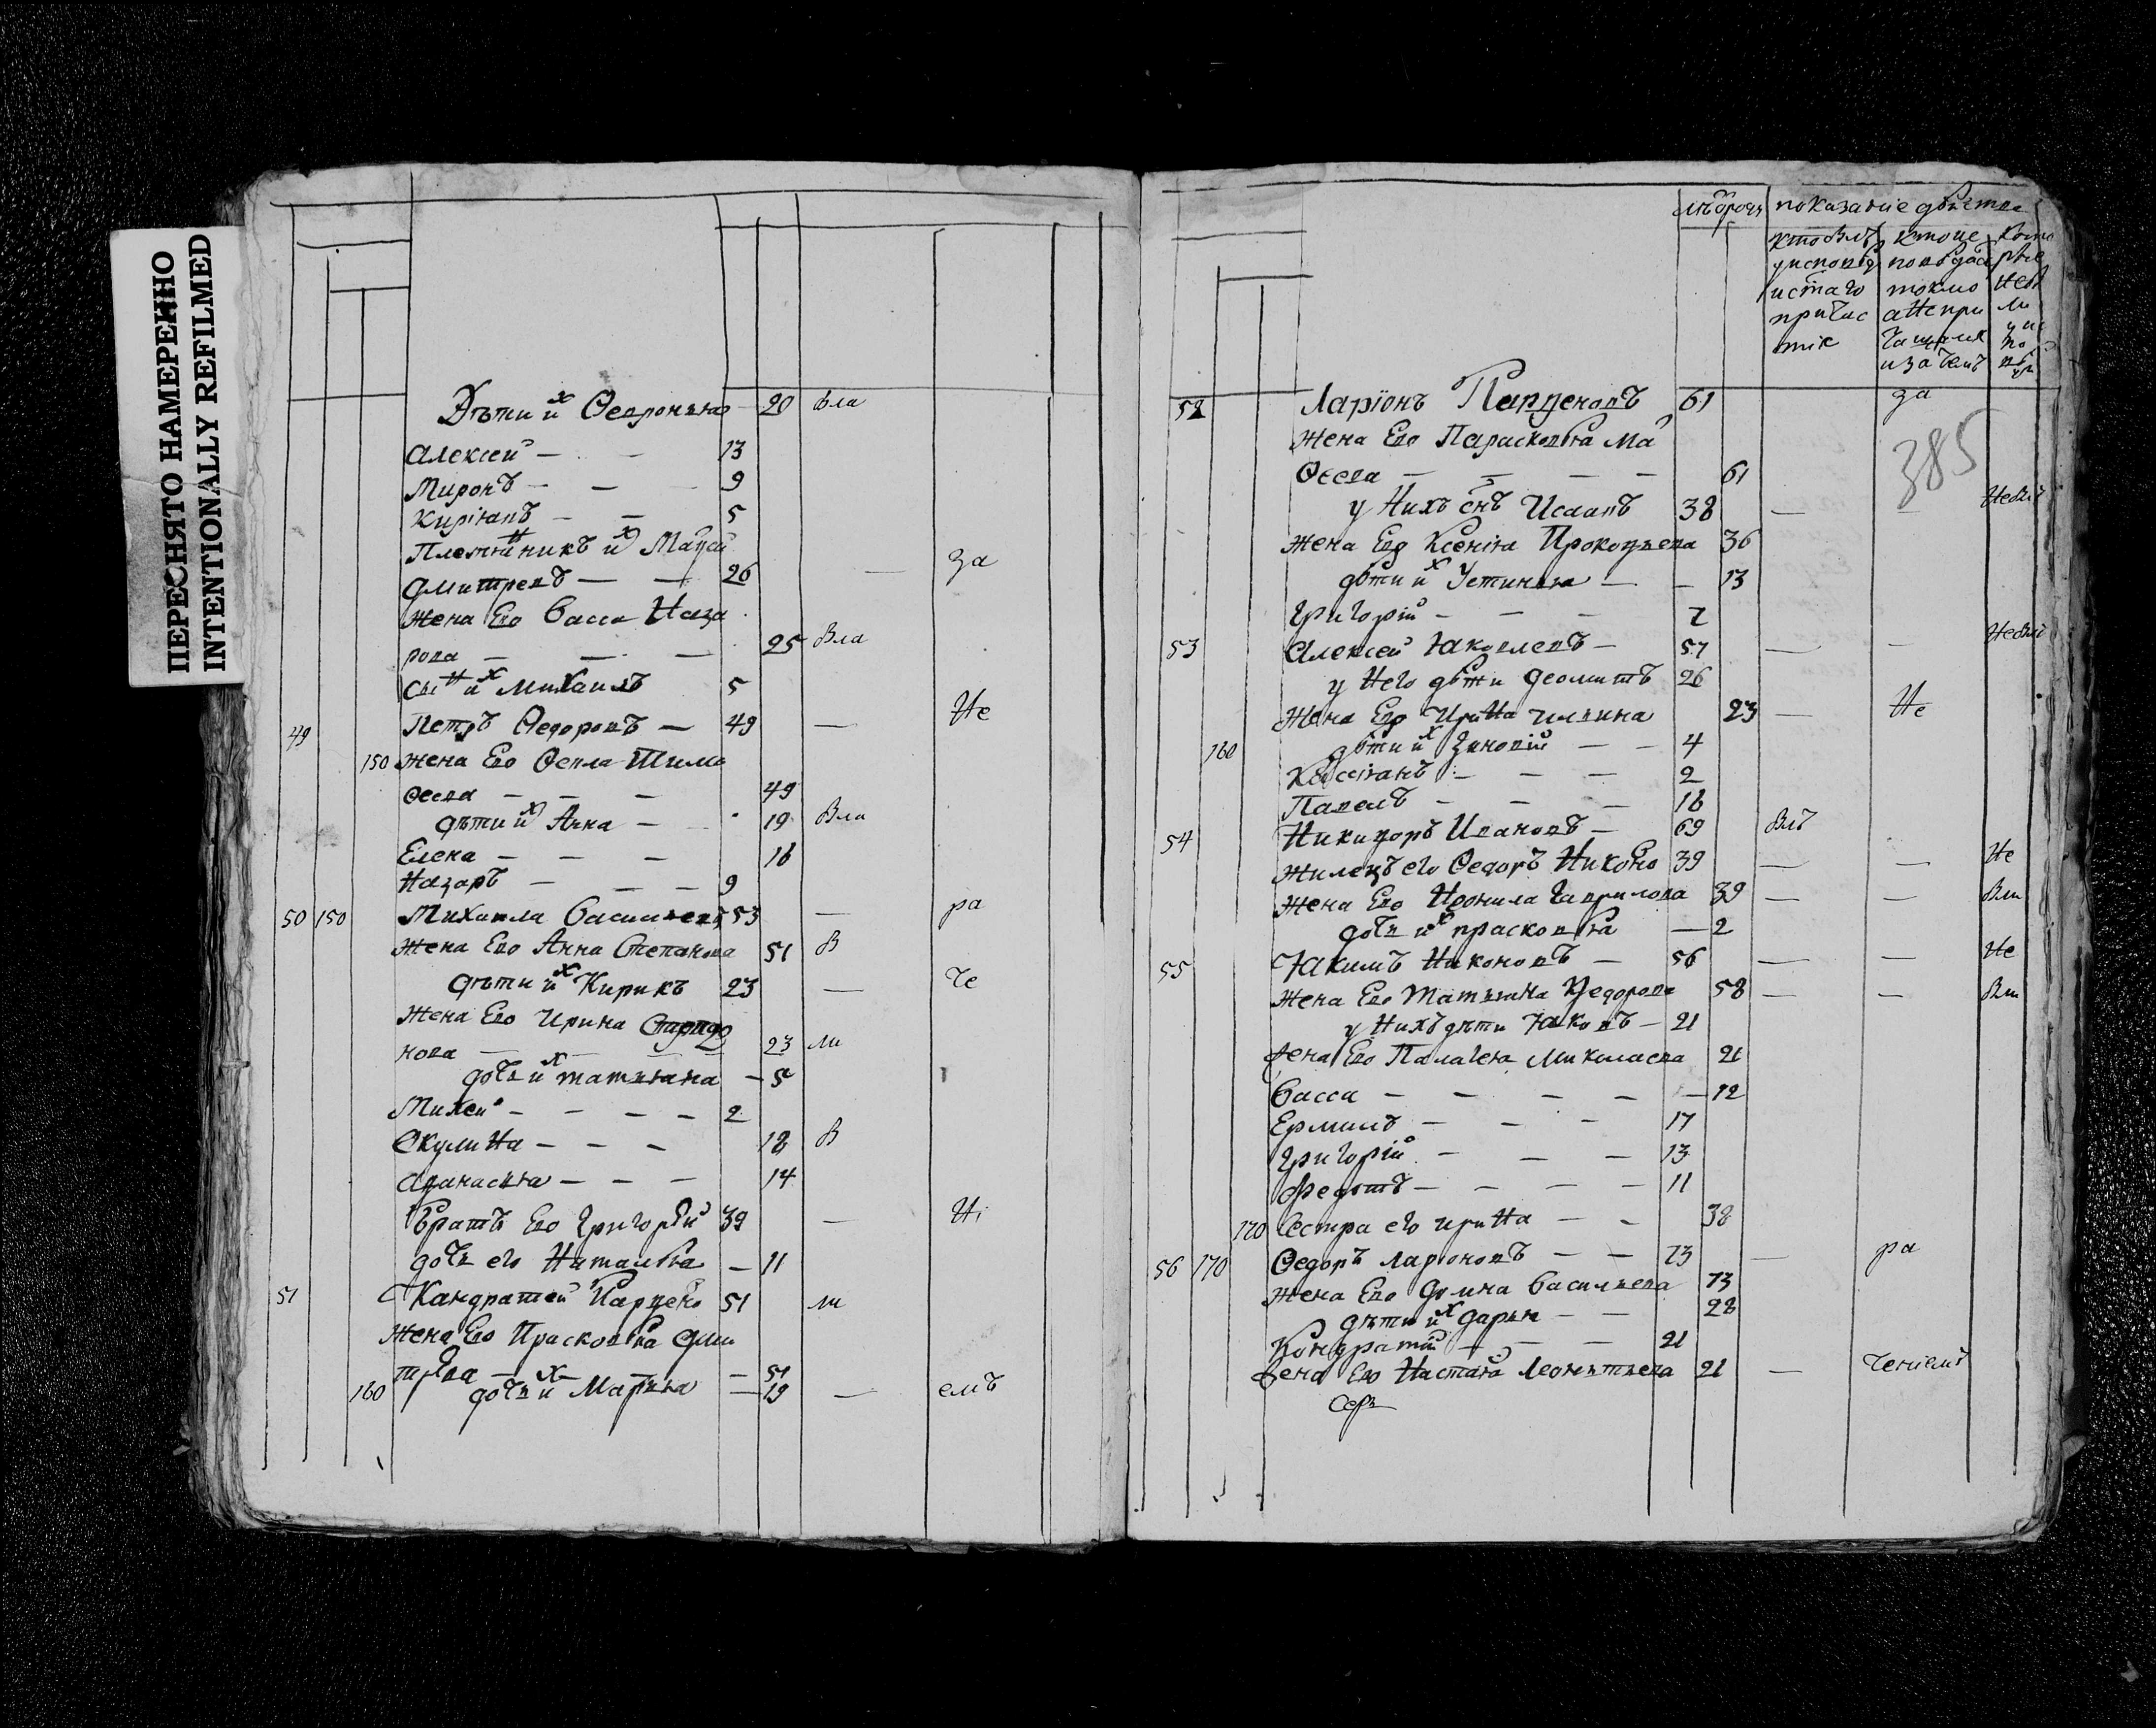 ПЕРЕСНЯТО НАМЕРЕННО
INTENTIONALLY REFILMED
Дѣти их Февронья 20 вла
Алексей — — 13
Миронъ — — 9
Кирiянъ — — 5
Племянникъ их
Дмитревъ — — 26 — за
Жена Ево Васса Наза
рова — — — 25 Вла
Сын их Михаилъ 5
49 Петръ Ѳедоровъ — 49 — Не
150 Жена Ево Ѳекла Тимо
ѳеева — — — 49
дѣти их Анна — 19 Вла
Елена — — — 16
Назаръ — — — 9
50 150 Михаила Васильевъ 53 — ра
Жена Ево Анна Степанова 51 В
дѣти их Кирикъ 23 — Че
Жена Ево Ирина Спиридо
нова — — — 23 ли
дочь их татьяна — 5
Михей — — — — 2
Окулина — — — 18 В
Афанасья — — — 14
Братъ Ево Григорѣй 39 — Нi
дочь его Наталья — 11
51 Кандратей Парфено 51 ли
Жена Ево Прасковья Дми
трѣва — — — 51
160 дочь их Марья — 19 — емъ
лѣтъ показанiе дѣйства
кто былъ
у исповѣд
и с̃таго
причас
тiя
кто не
токмо
а не при
чащался
и за чемъ
52 Ларiонъ Парфеновъ 61 за
385
Жена Ево Парасковья Ма
ѳеева — — — — 61
у Нихъ с̃нъ Исаакъ 38 — —
Жена Ево Ксенiя Прокофьева 36
дѣти их Устинья — — 13
Григорiй — — — 7
53 Алексей Яковлевъ — 57 — —
у Него дѣти 26
Жена Ево Ирина ильина 23 — Не
160 дѣти их Зиновiй — — 4
Касiянъ — — — 2
Павелъ — — — 16
54 Никифоръ Ивановъ — 69 Влъ
Жилецъ его Ѳедоръ Никоно 39 — — Не
Жена Ево Неонила Гаврилова 39 — — Вли
дочь их прасковья — 2
55 Якимъ Никоновъ — 56 — — Не
Жена Ево Татьяна Федорова 58 — — Вли
у Нихъ дѣти Яковъ — 21
Жена Ево Палагея Миколаева 21
Васса — — — — — 12
Ермилъ — — — 17
Григорiй — — — 13
Федотъ — — — — 11
170 Сестра его ирина — — 38
56 170 Ѳедоръ Ларiоновъ — — 73 — ра
Жена Ево Домна Васильева 73
дѣти их дарья — — 28
Кондратiй — — — 21
Жена Ево Настасiя Леонтьева 21 — ченiемъ